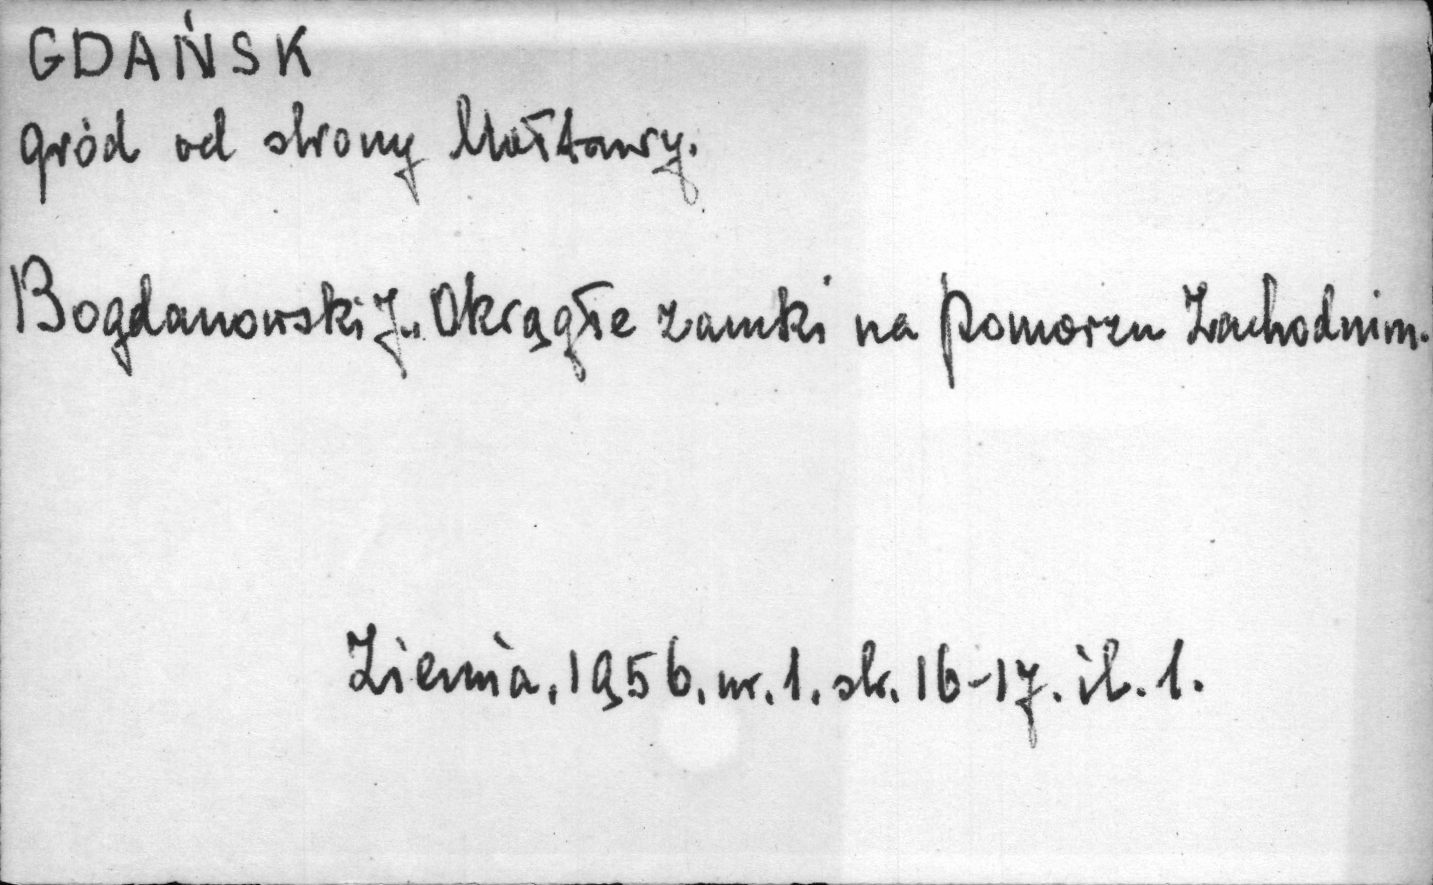 GDAŃSK
gród od strony Mołtawy.
Bogdanowski J.. Okrągłe zamki na Pomorzu Zachodnim.
Ziemia, 1956. nr. 1. str. 16-17. il. 1.